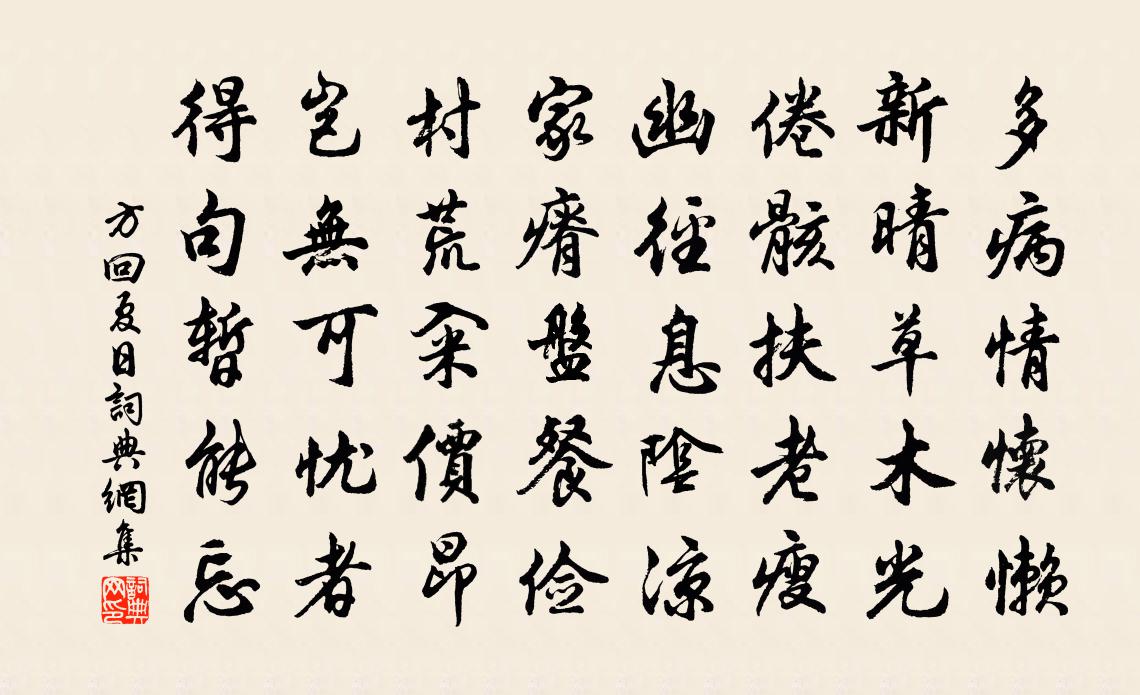 多病情懷懶
新晴草木光
倦骸扶老瘦
幽徑息陰涼
家瘠盤餐俭
村荒籴價昂
豈無可忧者
得句暫能忘
方回夏日詞典網集
詞典网印